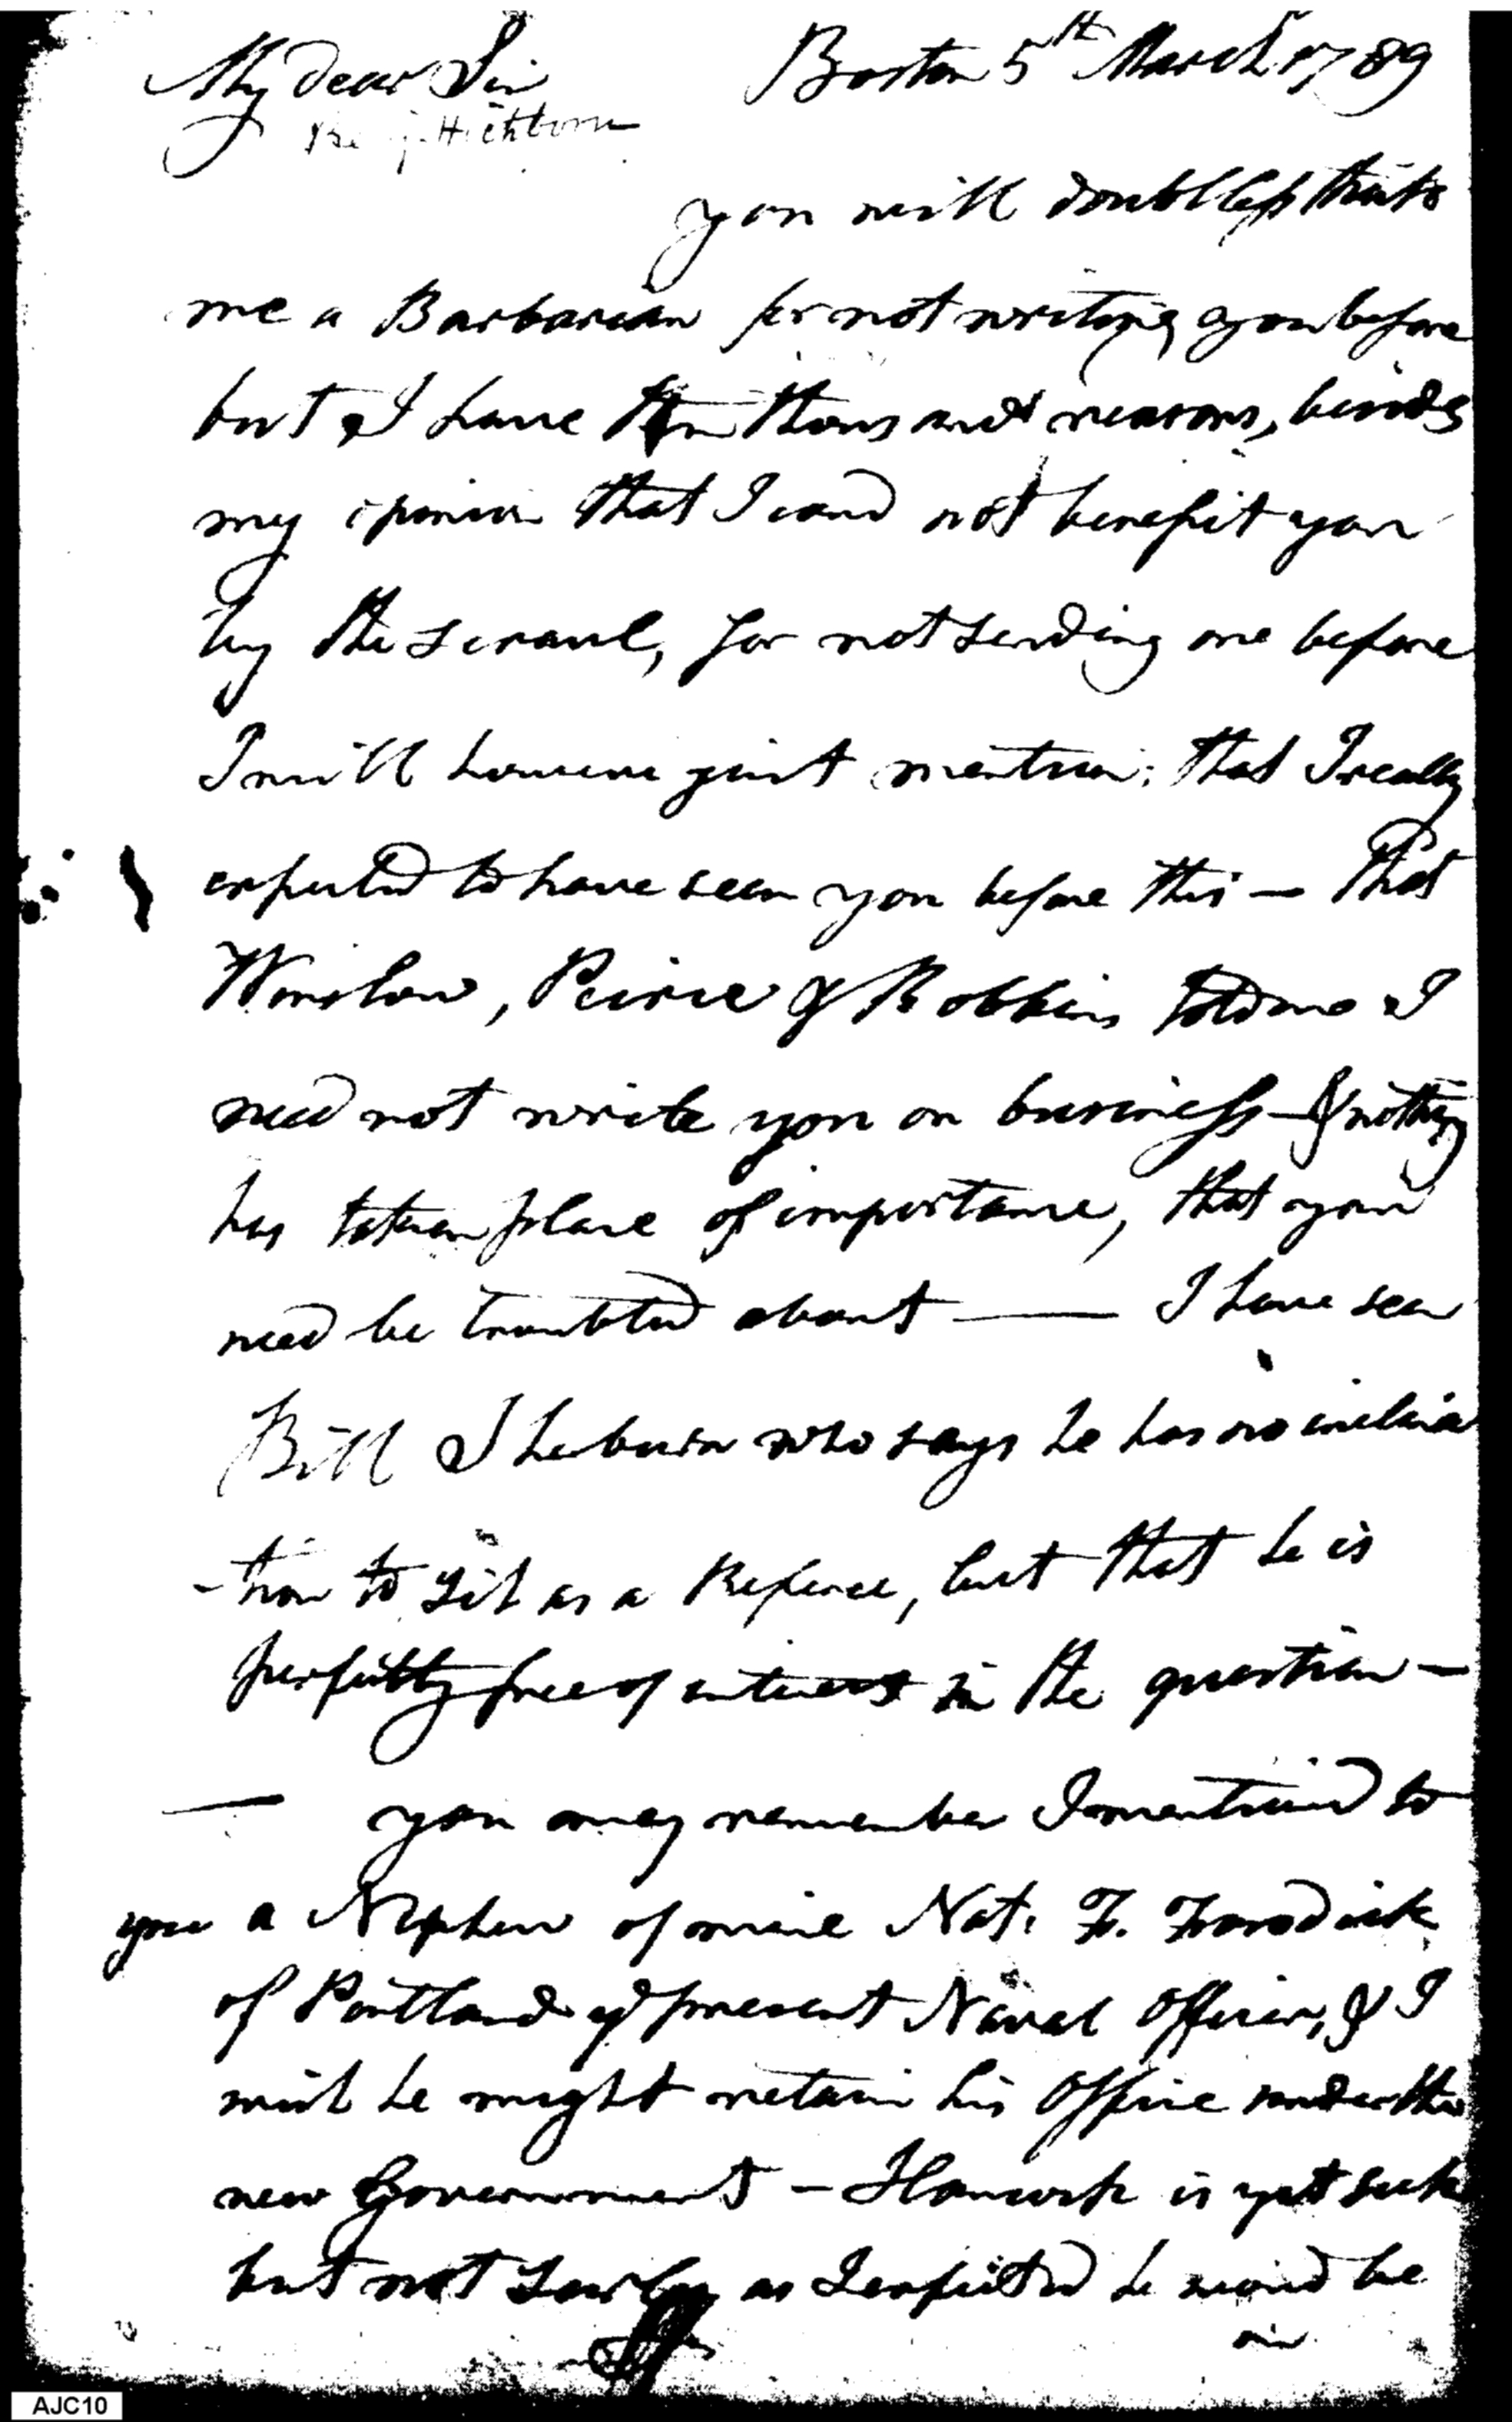 My dear Sir Boston 5th March 1789
Benj Hichborn
you will doubtless think
me a Barbarian for not writing you before
but I have ten thousand reasons, besides
my opinion that I coud not benefit you
by the scrawl, for not sending one before
I will however just mention, that I really
expected to have seen you before this — that
Winslow, Peirce & Robbins told me I
need not write you on business — & nothing
has taken place of importance, that you
need be troubled about — I have seen
Bill Sheburn who says he has no inclina
-tion to sit as a Referee, but that he is
perfectly free of interest in the question —
— you may remember I mentiond to
you a Nephew of mine Nat. F. Fosdick
of Portland ye present Naval Officer, & I
wish he might retain his Office under the
new Government — Hancock is yet sick
but not as I expected he woud be
in
AJC10